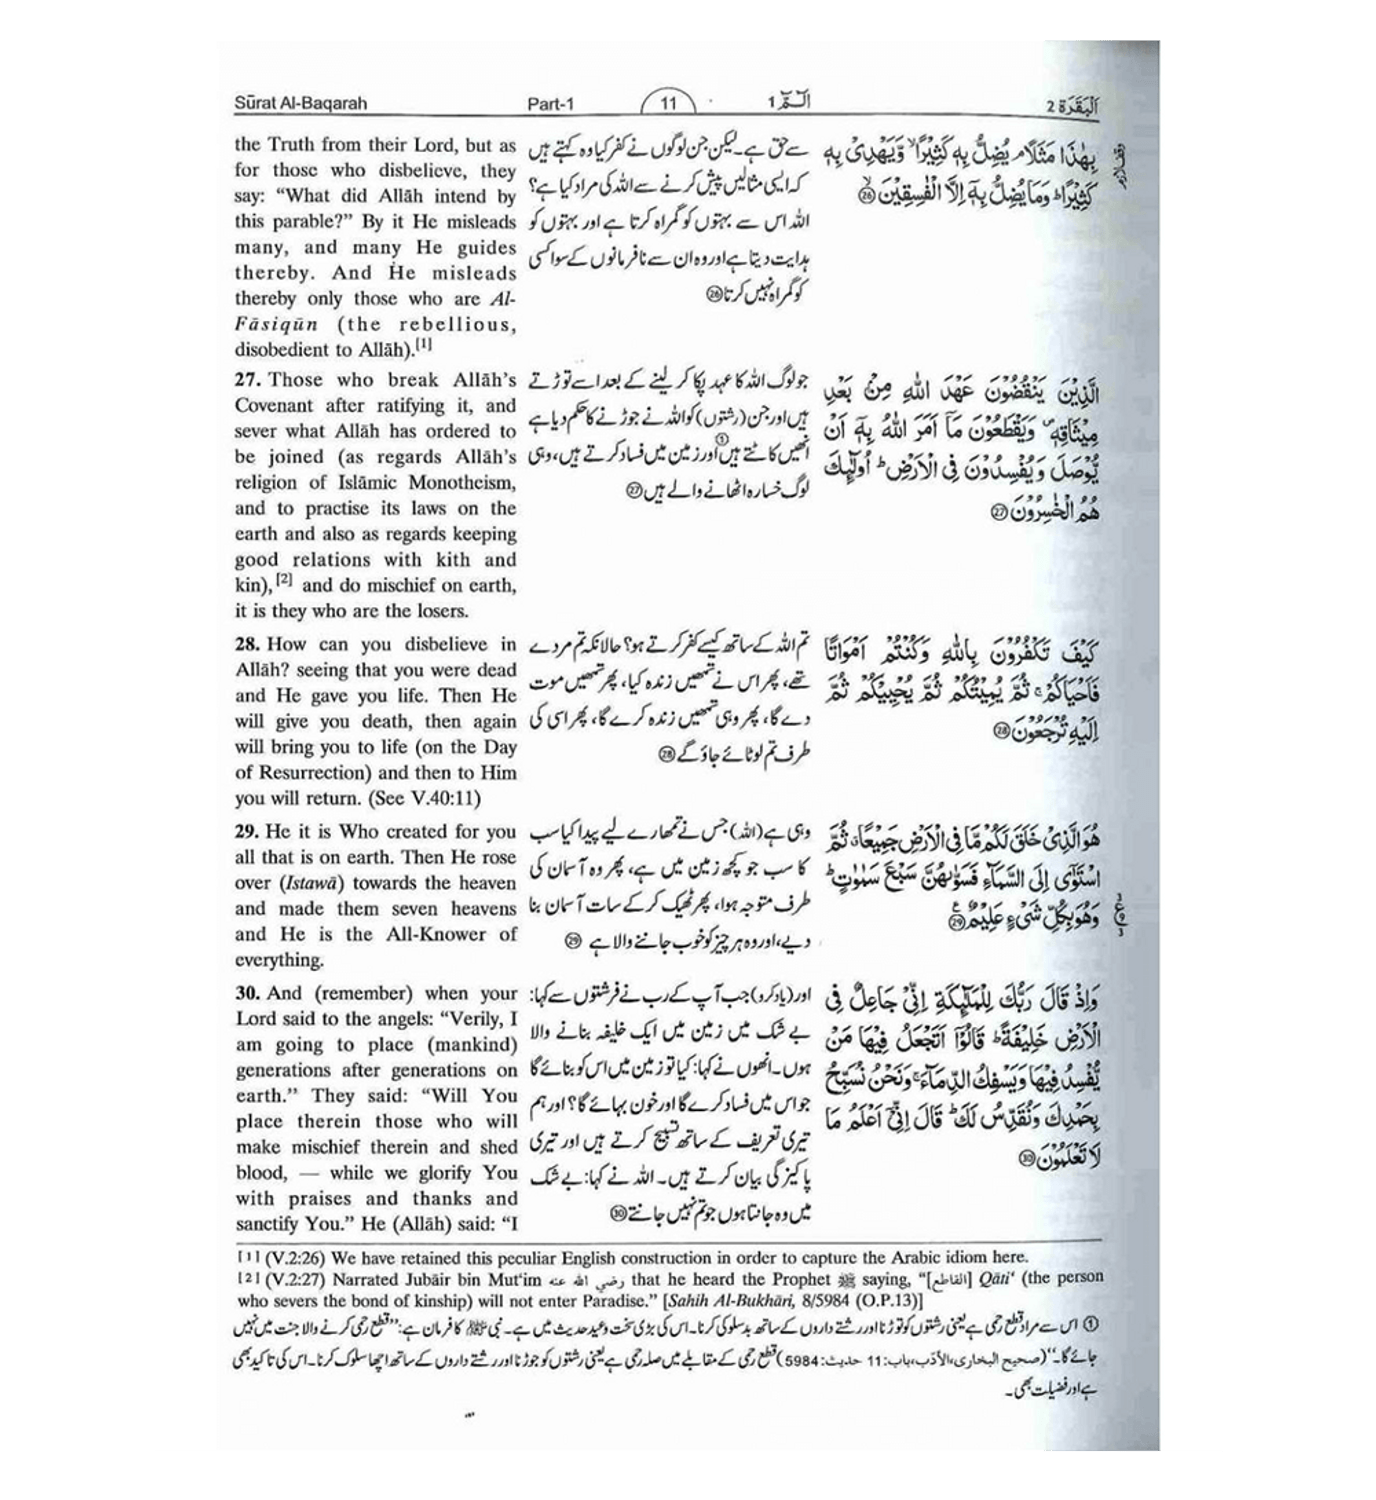 Sūrat Al-Baqarah Part-1 11 الٓمّٓ 1 اَلْبَقَرَة 2
the Truth from their Lord, but as
for those who disbelieve, they
say: “What did Allāh intend by
this parable?” By it He misleads
many, and many He guides
thereby. And He misleads
thereby only those who are Al-
Fāsiqūn (the rebellious,
disobedient to Allāh).[1]
27. Those who break Allāh’s
Covenant after ratifying it, and
sever what Allāh has ordered to
be joined (as regards Allāh’s
religion of Islāmic Monotheism,
and to practise its laws on the
earth and also as regards keeping
good relations with kith and
kin),[2] and do mischief on earth,
it is they who are the losers.
28. How can you disbelieve in
Allāh? seeing that you were dead
and He gave you life. Then He
will give you death, then again
will bring you to life (on the Day
of Resurrection) and then to Him
you will return. (See V.40:11)
29. He it is Who created for you
all that is on earth. Then He rose
over (Istawā) towards the heaven
and made them seven heavens
and He is the All-Knower of
everything.
30. And (remember) when your
Lord said to the angels: “Verily, I
am going to place (mankind)
generations after generations on
earth.” They said: “Will You
place therein those who will
make mischief therein and shed
blood, — while we glorify You
with praises and thanks and
sanctify You.” He (Allāh) said: “I
سے حق ہے۔ لیکن جن لوگوں نے کفر کیا وہ کہتے ہیں
کہ ایسی مثالیں پیش کرنے سے اللہ کی مراد کیا ہے؟
اللہ اس سے بہتوں کو گمراہ کرتا ہے اور بہتوں کو
ہدایت دیتا ہے اور وہ ان سے نافرمانوں کے سوا کسی
کو گمراہ نہیں کرتا ㉖
جو لوگ اللہ کا عہد پکا کر لینے کے بعد اسے توڑتے
ہیں اور جن (رشتوں) کو اللہ نے جوڑنے کا حکم دیا ہے
انھیں کاٹتے ہیں① اور زمین میں فساد کرتے ہیں، وہی
لوگ خسارہ اٹھانے والے ہیں ㉗
تم اللہ کے ساتھ کیسے کفر کرتے ہو؟ حالانکہ تم مردے
تھے، پھر اس نے تمھیں زندہ کیا، پھر تمھیں موت
دے گا، پھر وہی تمھیں زندہ کرے گا، پھر اسی کی
طرف تم لوٹائے جاؤ گے ㉘
وہی ہے (اللہ) جس نے تمھارے لیے پیدا کیا سب
کا سب جو کچھ زمین میں ہے، پھر وہ آسمان کی
طرف متوجہ ہوا، پھر ٹھیک کر کے سات آسمان بنا
دیے، اور وہ ہر چیز کو خوب جاننے والا ہے ㉙
اور (یاد کرو) جب آپ کے رب نے فرشتوں سے کہا:
بے شک میں زمین میں ایک خلیفہ بنانے والا
ہوں۔ انھوں نے کہا: کیا تو زمین میں اس کو بنائے گا
جو اس میں فساد کرے گا اور خون بہائے گا؟ اور ہم
تیری تعریف کے ساتھ تسبیح کرتے ہیں اور تیری
پاکیزگی بیان کرتے ہیں۔ اللہ نے کہا: بے شک
میں وہ جانتا ہوں جو تم نہیں جانتے ㉚
بِهٰذَا مَثَلًا ۘ يُضِلُّ بِهٖ كَثِيْرًا ۙ وَّيَهْدِيْ بِهٖ
كَثِيْرًا ؕ وَمَا يُضِلُّ بِهٖٓ اِلَّا الْفٰسِقِيْنَ ۙ㉖
الَّذِيْنَ يَنْقُضُوْنَ عَهْدَ اللّٰهِ مِنْۢ بَعْدِ
مِيْثَاقِهٖ ۪ وَيَقْطَعُوْنَ مَآ اَمَرَ اللّٰهُ بِهٖٓ اَنْ
يُّوْصَلَ وَيُفْسِدُوْنَ فِي الْاَرْضِ ؕ اُولٰٓئِكَ
هُمُ الْخٰسِرُوْنَ ㉗
كَيْفَ تَكْفُرُوْنَ بِاللّٰهِ وَكُنْتُمْ اَمْوَاتًا
فَاَحْيَاكُمْ ۚ ثُمَّ يُمِيْتُكُمْ ثُمَّ يُحْيِيْكُمْ ثُمَّ
اِلَيْهِ تُرْجَعُوْنَ ㉘
هُوَ الَّذِيْ خَلَقَ لَكُمْ مَّا فِي الْاَرْضِ جَمِيْعًا ۗ ثُمَّ
اسْتَوٰٓى اِلَى السَّمَآءِ فَسَوّٰىهُنَّ سَبْعَ سَمٰوٰتٍ ؕ
وَهُوَ بِكُلِّ شَيْءٍ عَلِيْمٌ ㉙
وَاِذْ قَالَ رَبُّكَ لِلْمَلٰٓئِكَةِ اِنِّيْ جَاعِلٌ فِي
الْاَرْضِ خَلِيْفَةً ؕ قَالُوْٓا اَتَجْعَلُ فِيْهَا مَنْ
يُّفْسِدُ فِيْهَا وَيَسْفِكُ الدِّمَآءَ ۚ وَنَحْنُ نُسَبِّحُ
بِحَمْدِكَ وَنُقَدِّسُ لَكَ ؕ قَالَ اِنِّيْٓ اَعْلَمُ مَا
لَا تَعْلَمُوْنَ ㉚
وقف لازم
ع
[1] (V.2:26) We have retained this peculiar English construction in order to capture the Arabic idiom here.
[2] (V.2:27) Narrated Jubāir bin Mut‘im رضي الله عنه that he heard the Prophet ﷺ saying, “[القاطع] Qāti‘ (the person
who severs the bond of kinship) will not enter Paradise.” [Sahih Al-Bukhāri, 8/5984 (O.P.13)]
① اس سے مراد قطع رحمی ہے یعنی رشتوں کو توڑنا اور رشتے داروں کے ساتھ بدسلوکی کرنا۔ اس کی بڑی سخت وعید حدیث میں ہے۔ نبی ﷺ کا فرمان ہے: ”قطع رحمی کرنے والا جنت میں نہیں
جائے گا۔“ (صحيح البخاری، الأدب، باب: 11 حدیث: 5984) قطع رحمی کے مقابلے میں صلہ رحمی ہے یعنی رشتوں کو جوڑنا اور رشتے داروں کے ساتھ اچھا سلوک کرنا۔ اس کی تاکید بھی
ہے اور فضیلت بھی۔